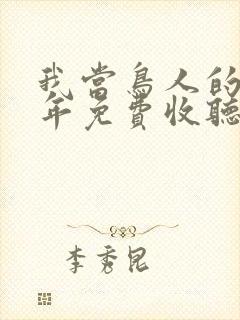 我當鳥人的
年免費收聽
李秀昆